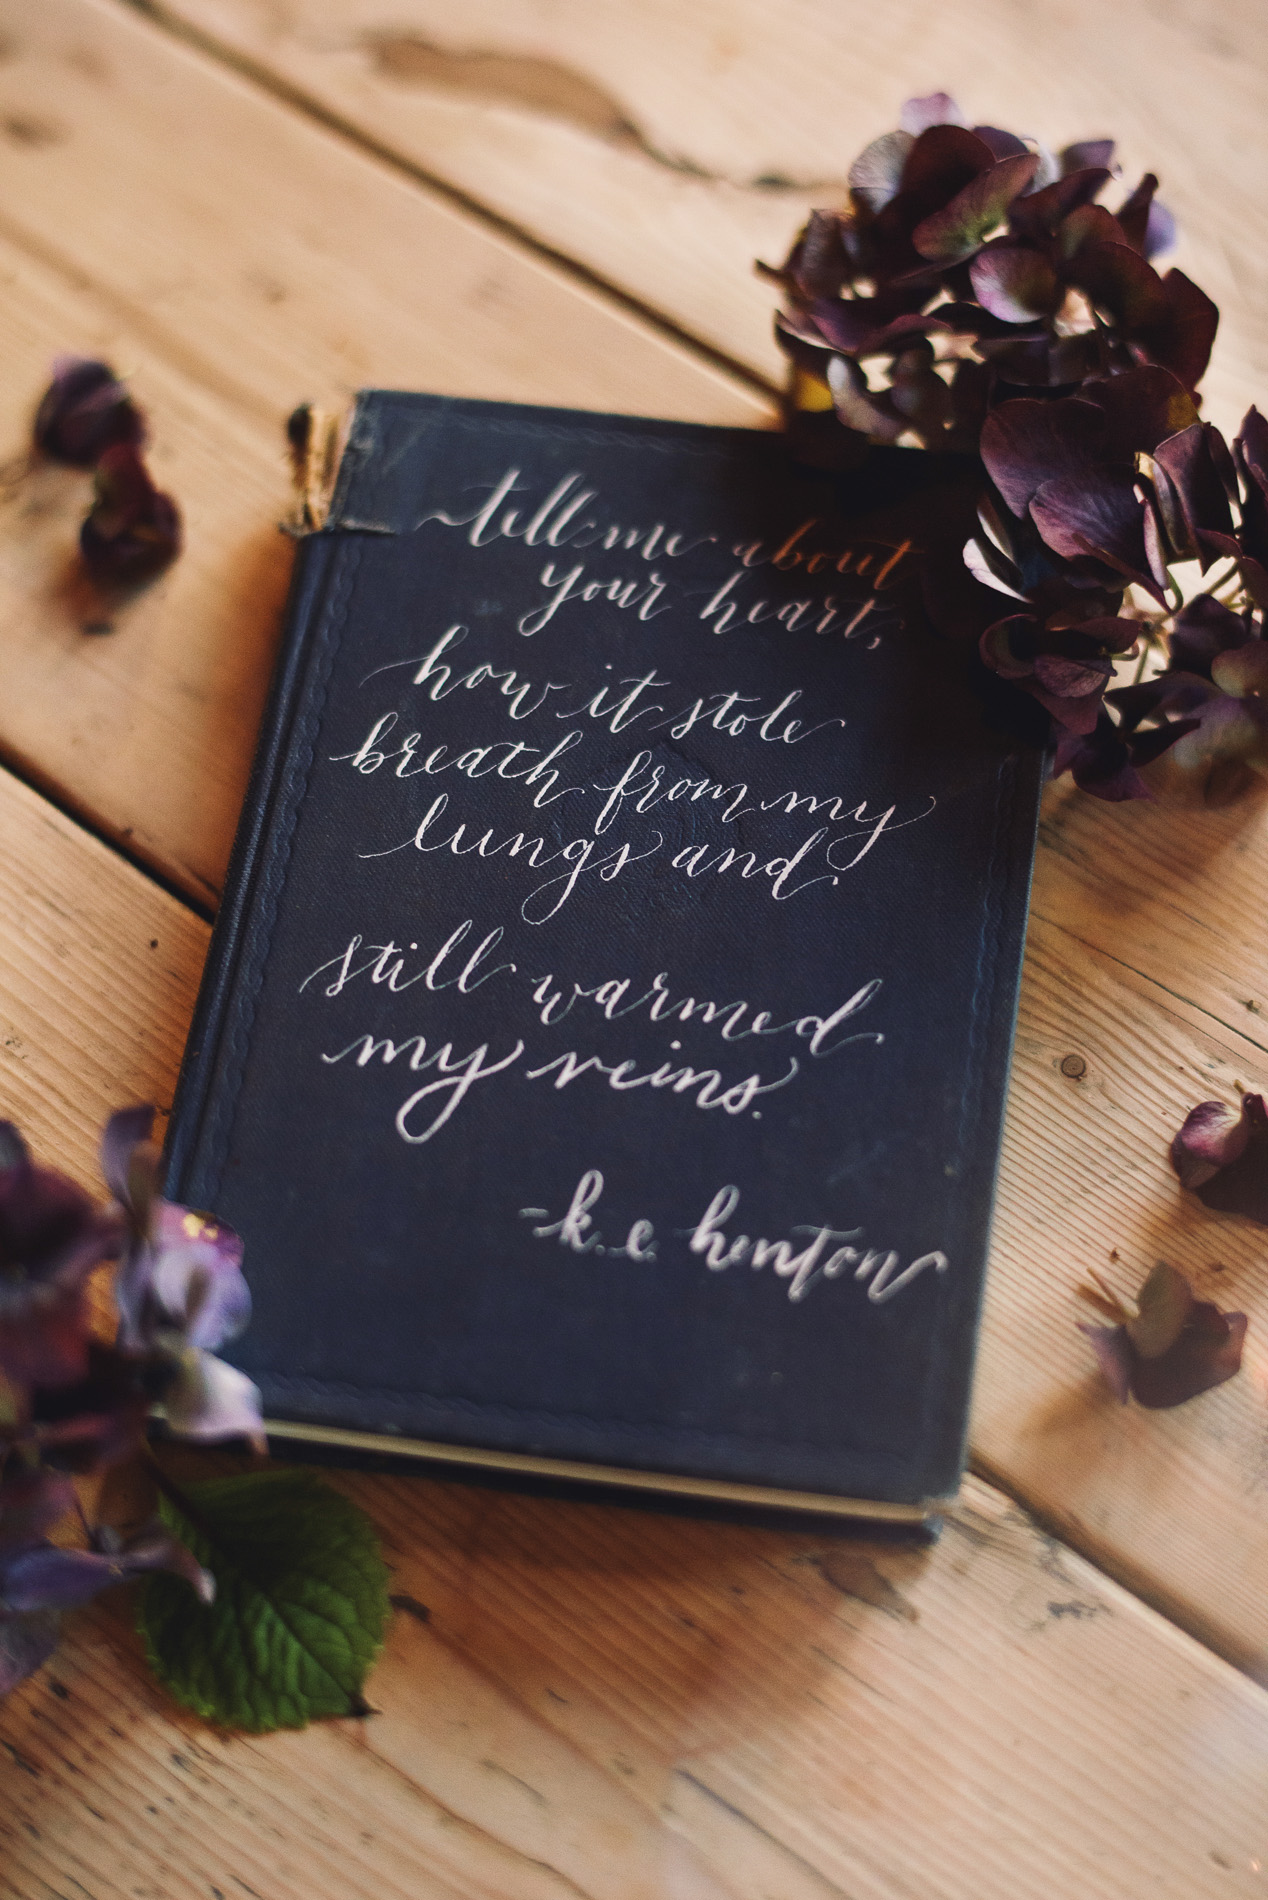 tell me about
your heart,
how it stole
breath from my
lungs and
still warmed
my veins.
-k.e. henton